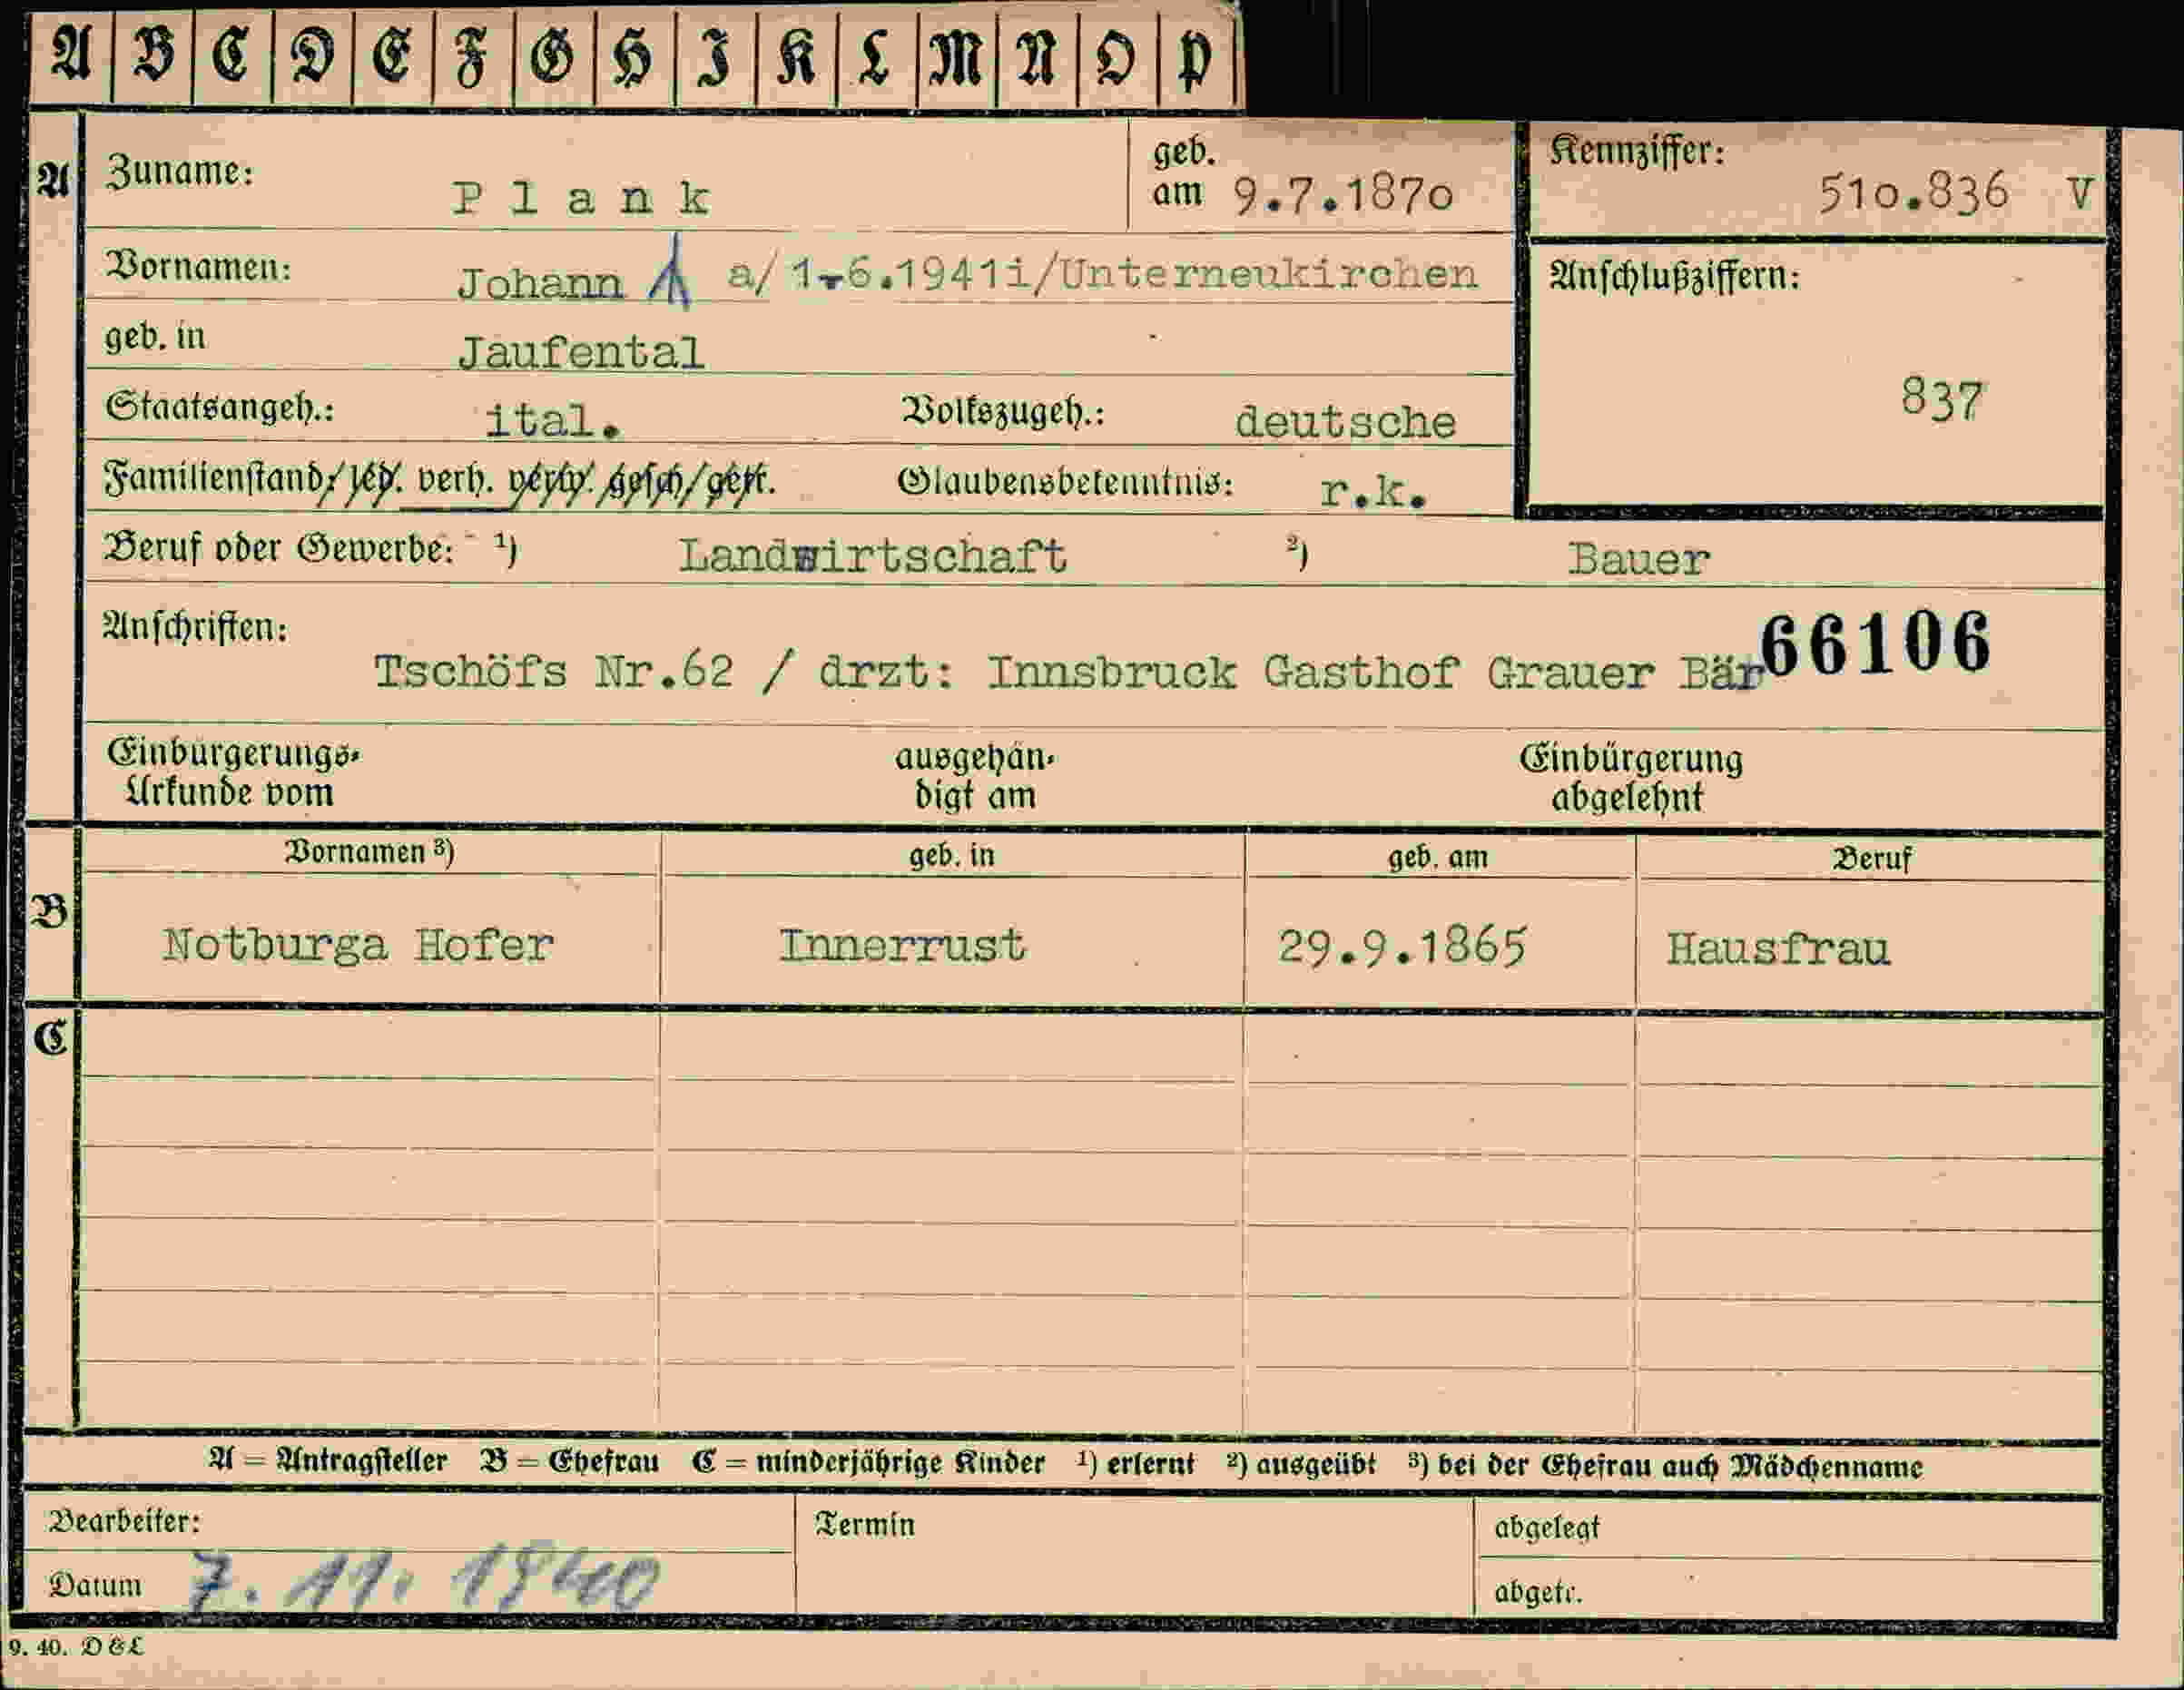 A B C D E F G H I K L M N O P
A Zuname: Plank geb. am 9.7.1870 Kennziffer: 510.836 V
Vornamen: Johann a/ 1.6.1941i/Unterneukirchen Anschlußziffern:
geb. in Jaufental
837
Staatsangeh.: ital. Volkszugeh.: deutsche
Familienstand: led. verh. verw. gesch. getr. Glaubensbekenntnis: r.k.
Beruf oder Gewerbe: ¹) Landwirtschaft ²) Bauer
Anschriften:
Tschöfs Nr.62 / drzt: Innsbruck Gasthof Grauer Bär 66106
Einbürgerungs- ausgehän- Einbürgerung
Urkunde vom digt am abgelehnt
Vornamen ³) geb. in geb. am Beruf
B Notburga Hofer Innerrust 29.9.1865 Hausfrau
C
A = Antragsteller B = Ehefrau C = minderjährige Kinder ¹) erlernt ²) ausgeübt ³) bei der Ehefrau auch Mädchenname
Bearbeiter: Termin abgelegt
Datum 7. 11. 1940 abgetr.
9. 40. D&L